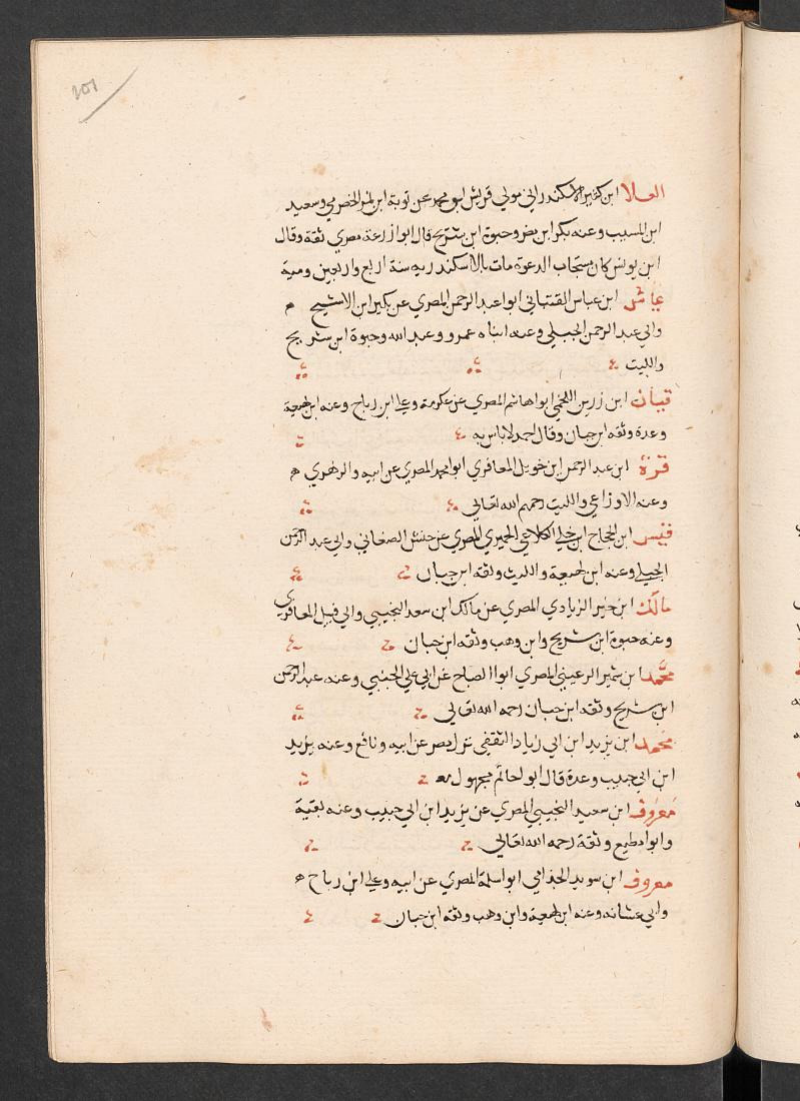 101
العلا ابن كثير الاسكندراني مولي قريش ابو محمد عن توبة ابن نمر الحضرمي وسعيد
ابن المسيب وعنه بكر ابن مضر وحيوة ابن شريح قال ابوا زرعة مصري ثقة وقال
ابن يونس كان مستجاب الدعوة مات بالاسكندريه سنة اربع واربعين وميه
عياش ابن عباس القتباني ابوا عبد الرحمن المصري عن بكير ابن الاشيج م
وابي عبد الرحمن الحبلي وعنه ابناه عمرو وعبد الله وحيوة ابن شريح
والليث
قباث ابن زرين اللخمي ابوا هاشم المصري عن عكرمة وعلي ابن رباح وعنه ابن لهيعة
وعدة وثقه ابن حبان وقال احمد لا باس به
قرة ابن عبد الرحمن ابن حويل المعافري ابوا محمد المصري عن ابيه والزهري ه
وعنه الاوزاعي والليث رحمهم الله تعالى
قيس ابن الحجاج ابن خلي الكلاعي الحميري المصري عن حنش الصنعاني وابي عبد الرحمن
الحبلي وعنه ابن لهيعة والليث وثقه ابن حبان
مالك ابن خير الزيادي المصري عن مالك ابن سعد التجيبي وابي قبيل المعافري
وعنه حيوة ابن شريح وابن وهب وثقه ابن حبان
محمد ابن شمير الرعيني المصري ابوا الصباح عن ابي علي الجنبي وعنه عبد الرحمن
ابن شريح وثقه ابن حبان رحمه الله تعالى
محمد ابن يزيد ابن ابي زياد الثقفي نزل مصر عن ابيه ونافع وعنه يزيد
ابن ابي حبيب وعدة قال ابو حاتم مجهول
معروف ابن سعيد التجيبي المصري عن يزيد ابن ابي حبيب وعنه بقية
وابوا مطيع وثقة رحمه الله تعالى
معروف ابن سويد الجذامي ابوا سلمة المصري عن ابيه وعلي ابن رباح ه
وابي عشانه وعنه ابن لهيعة وابن وهب وثقه ابن حبان